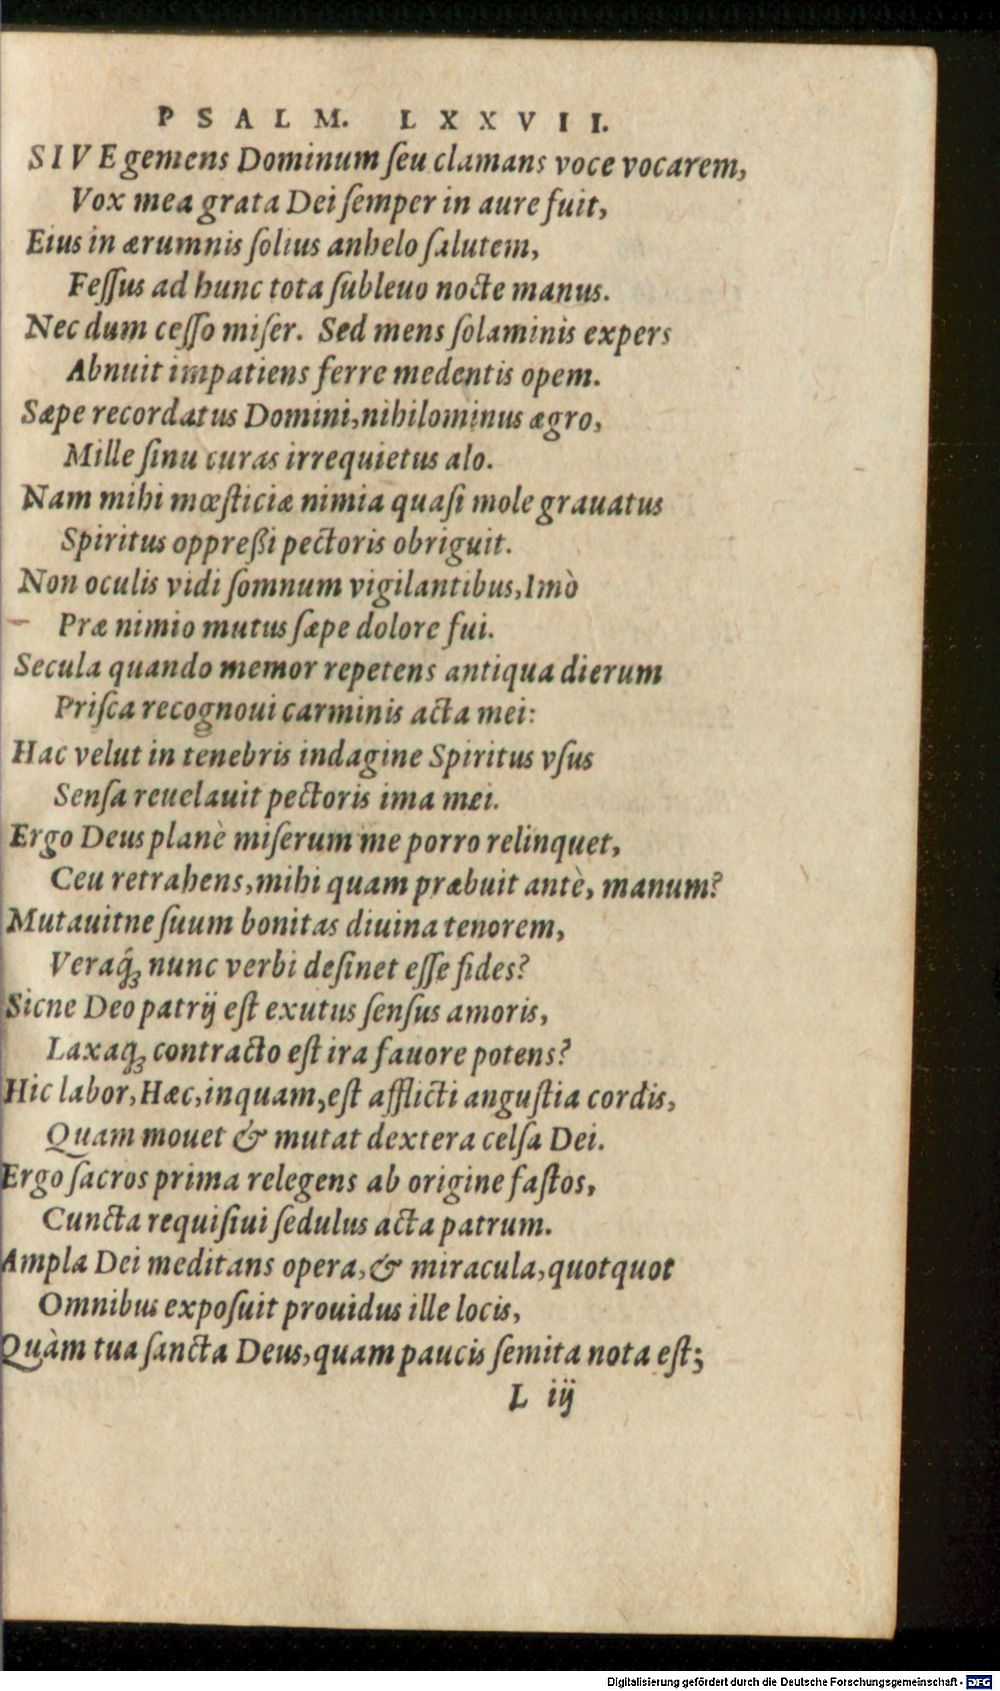 PSALM. LXXVII.
SIVE gemens Dominum ſeu clamans voce vocarem,
Vox mea grata Dei ſemper in aure fuit,
Eius in ærumnis ſolius anhelo ſalutem,
Feſſus ad hunc tota ſubleuo nocte manus.
Nec dum ceſſo miſer. Sed mens ſolaminis expers
Abnuit impatiens ferre medentis opem.
Sæpe recordatus Domini, nihilominus ægro,
Mille ſinu curas irrequietus alo.
Nam mihi mœſticiæ nimia quaſi mole grauatus
Spiritus oppreßi pectoris obriguit.
Non oculis vidi ſomnum vigilantibus, Imò
Præ nimio mutus ſæpe dolore fui.
Secula quando memor repetens antiqua dierum
Priſca recognoui carminis acta mei:
Hac velut in tenebris indagine Spiritus vſus
Senſa reuelauit pectoris ima mei.
Ergo Deus planè miſerum me porro relinquet,
Ceu retrahens, mihi quam præbuit antè, manum?
Mutauitne ſuum bonitas diuina tenorem,
Veraq́; nunc verbi deſinet eſſe fides?
Sicne Deo patrij eſt exutus ſenſus amoris,
Laxaq; contracto eſt ira fauore potens?
Hic labor, Hæc, inquam, eſt afflicti anguſtia cordis,
Quam mouet & mutat dextera celſa Dei.
Ergo ſacros prima relegens ab origine faſtos,
Cuncta requiſiui ſedulus acta patrum.
Ampla Dei meditans opera, & miracula, quotquot
Omnibus expoſuit prouidus ille locis,
Quàm tua ſancta Deus, quam paucis ſemita nota eſt;
L iij
Digitalisierung gefördert durch die Deutsche Forschungsgemeinschaft - DFG